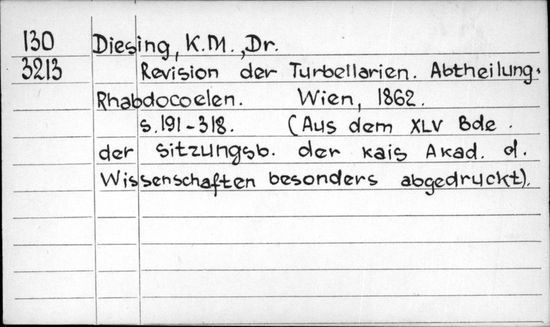 130 Diesing, K.M., Dr.
3213 Revision der Turbellarien. Abtheilung.
Rhabdocoelen. Wien, 1862.
s.191-318. (Aus dem XLV Bde.
der Sitzungsb. der Kais Akad. d.
Wissenschaften besonders abgedruckt).